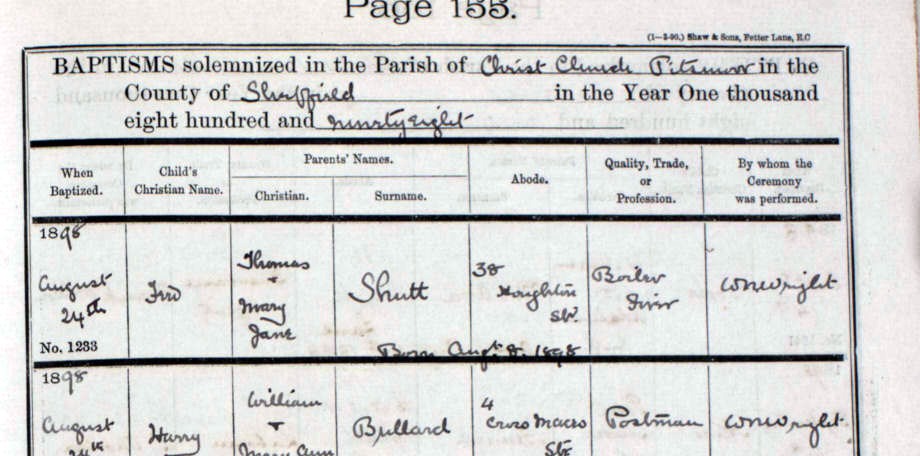 Page 155.
(1—2-96.) Shaw & Sons, Fetter Lane, E.C
BAPTISMS solemnized in the Parish of Christ Church Pitsmoor in the
County of Sheffield in the Year One thousand
eight hundred and ninety eight
When Baptized.
Child's Christian Name.
Parents' Names.
Christian.
Surname.
Abode.
Quality, Trade, or Profession.
By whom the Ceremony was performed.
1898
August
24th
No. 1233
Fred
Thomas
+
Mary
Jane
Shutt
38
Houghton
Str
Boiler
Firer
Born Augt 8. 1898
1898
August
24th
Harry
William
+
Mary Ann
Bullard
4
Cross Macro
Str
Postman